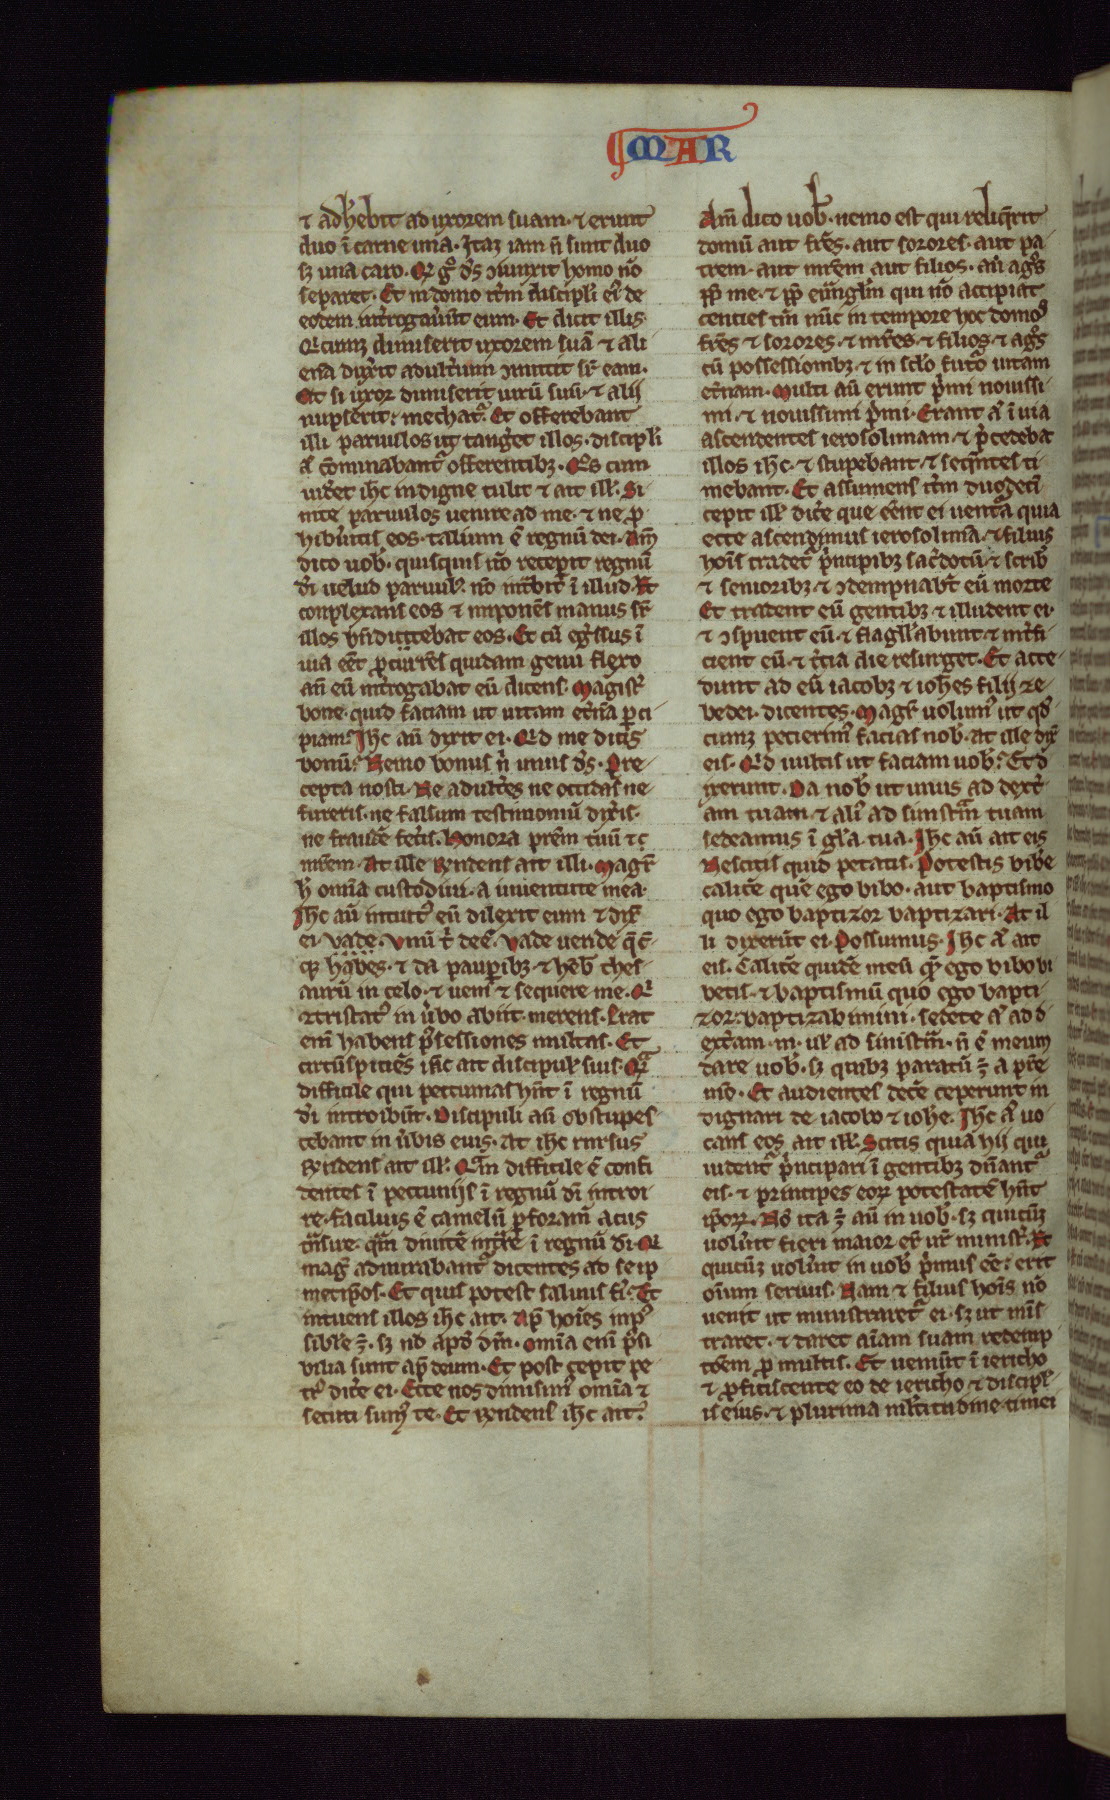 MAR
⁊ adh̓ebit ad uxorem suam · ⁊ erunt
duo ī carne una · Itaq; iam n̄ sunt duo
sꝫ una caro · Qͦ gͦ d̄s ↄiunxit homo nō
separet · Et in domo it̓m discipl̓i ei᷒ de
eodem int̓rogau̓nt eum · Et dicit illis
Qͥcumꝫ dimiserit uxorem suā ⁊ ali
enā dux̓it adult̓ium ↄmittit sr̄ eam ·
Et si uxor dimiserit uirū suū · ⁊ alii
nupserit : mechat᷑ · Et offerebant
illi paruulos ut tang̓et illos · discipl̓i
aͨ cōminabant᷑ offerentibꝫ · Qͦs cum
uid̓et ih̄c indigne tulit ⁊ ait ill̓ · Si
nite paruulos uenire ad me · ⁊ ne ꝓ
hibu̓itis eos · talium ē regnū dei · Am̄
dico uob̓ · quisquis nō recepit regnū
dī uelud paruul᷒ · nō int̓bit ī illud · Et
conplexans eos ⁊ imponēs manus sr̄
illos bn̄dicebat eos · Et cū eg̓ssus ī
uia eēt ꝓcurrēs quidam genu flexo
an̄ eū int̓rogabat eū dicens · Magist̓
bone · quid faciam ut uitam et̓nā ꝑci
piam · Ih̄c aū dixit ei · Qͥd me dicis
bonū · Nemo bonus n̓ unus d̄s · Pre
cepta nosti · Ne adult̓es ne occidas ne
fureris · ne falsum testimoniū dix̓is ·
ne fraudē fec̓is · Honora pr̄em tuū ⁊
mr̄em · At ille r̄ndens ait illi · Magr̄
h̓ omīa custodiui · a iuuentute mea ·
Ih̄c aū intuit᷒ eū dilexit eum ⁊ dix̓
ei · vade · vnū t̓ deē · vade uende q̄c̄
q̨ habes · ⁊ da paup̓ibꝫ · ⁊ hēb̓ thes
aurū in celo · ⁊ ueni ⁊ sequere me · Qͥ
ↄtristat᷒ in u̓bo abiit merens · Erat
eni̅ habens possessiones multas · Et
circūspiciēs ih̄c ait discipul̓ suis · Qͣ
difficile qui peccunias hn̄t ī regnū
dī introibūt · Discipuli aū obstupes
cebant in u̓bis eius · At ih̄c rursus
r̄ndens ait ill̓ · Qͣm difficile ē confi
dentes ī peccuniis ī regnū dī introi
re · facilius ē camelū ꝑ foram̄ acus
tn̄sire · qͣm diuitē int̓re ī regnū dī · Qͥ
mag̓ admirabant᷑ dicentes ad se ip
metip̄os · Et quis potest saluus fi̓ · Et
intuens illos ih̄c ait · Ap̄ hoīes inpͦ
sibile ē · sꝫ nō apd̓ dm̄ · omīa eni̅ pͦsi
bilia sunt ap̄ deum · Et post cepit pe
tr᷒ dic̓e ei · Ecce nos dimisim᷒ omīa ⁊
secuti sum᷒ te · Et r̄ndens ih̄c ait ·
Am̄ dico uob̓ · nemo est qui reliq̓rit
domū aut fr̄es · aut sorores · aut pa
trem · aut mr̄em aut filios · aū agͦs
ꝓp̄ me · ⁊ ꝓp̄ euāngl̓m qui nō accipiat
centies tm̄ nūc in tempore hoc domos
fr̄es ⁊ sorores · ⁊ mr̄es · ⁊ filios · ⁊ agͦs
cū possessionibꝫ · ⁊ in sclo̓ futͦ o uitam
et̓nam · Multi aū erunt p̓mi nouissi
mi · ⁊ nouissimi p̓mi · Erant aͨ ī uia
ascendentes ierosolimam · ⁊ p̓cedebat
illos ih̄c · ⁊ stupebant · ⁊ seq̄ntes ti
mebant · Et assumens it̓m duodecī
cepit ill̓ dic̓e que eēnt ei uent̓a quia
ecce ascendimus ierosolimā · ⁊ filius
hoīs tradet᷑ p̓ncipibꝫ sac̓dotū · ⁊ scrib̓
⁊ senioribꝫ · ⁊ ↄdempnabt̓ eū morte
Et tradent eū gentibꝫ · ⁊ illudent ei ·
⁊ ↄspuent eū · ⁊ flagell̓abunt · ⁊ int̓fi
cient eū · ⁊ t̓cia die resurget · Et acce
dunt ad eū iacobꝫ ⁊ ioh̄es filii ze
bedei · dicentes · Magr̄ uolum᷒ ut qͦd
cumꝫ petierim᷒ facias nob̓ · At ille dix̓
eis · Qͥd uultis ut faciam uob̓ · Et d
ixerunt · Da nob̓ ut unus ad dext̓
am tuam · ⁊ ali᷒ ad sinistrā tuam
sedeamus ī gl̓a tua · Ih̄c aū ait eis
Nescitis quid petatis · Potestis bibe̓
calicē quē ego bibo · aut baptismo
quo ego baptizor baptizari · At il
li dixerūt ei · Possumus · Ih̄c aͨ ait
eis · Calicē quidē meū quē ego bibo bi
betis · ⁊ baptismū quo ego bapti
zor · baptizabimini · sedere aͨ ad d
ext̓am · m · ul̓ ad sinistrā · n̄ ē meum
dare uob̓ · sꝫ quibꝫ paratū ē a pr̄e
mō · Et audientes decē ceperunt in
dignari de iacobo ⁊ ioh̄e · Ih̄c aͨ uo
cans eos ait ill̓ · Scitis quia hii qui
uident᷑ p̓ncipari ī gentibꝫ dn̄ant᷑
eis · ⁊ principes eoꝝ potestatē hn̄t
ip̄oꝝ · Nō ita ē aū in uob̓ · sꝫ quicūꝫ
uolu̓it fieri maior er̄ ur̄ minist̓ · Et
quicūꝫ uolu̓it in uob̓ p̓mus eē : erit
oīum seruus · Nam ⁊ filius hoīs nō
uenit ut ministraret᷑ ei · sꝫ ut minis
traret · ⁊ daret aīam suam redemp
tōem ꝓ multis · Et ueniūt ī iericho
⁊ ꝓficiscente eo de iericho · ⁊ discipl̓
is eius · ⁊ plurima ml̓titudine · timei